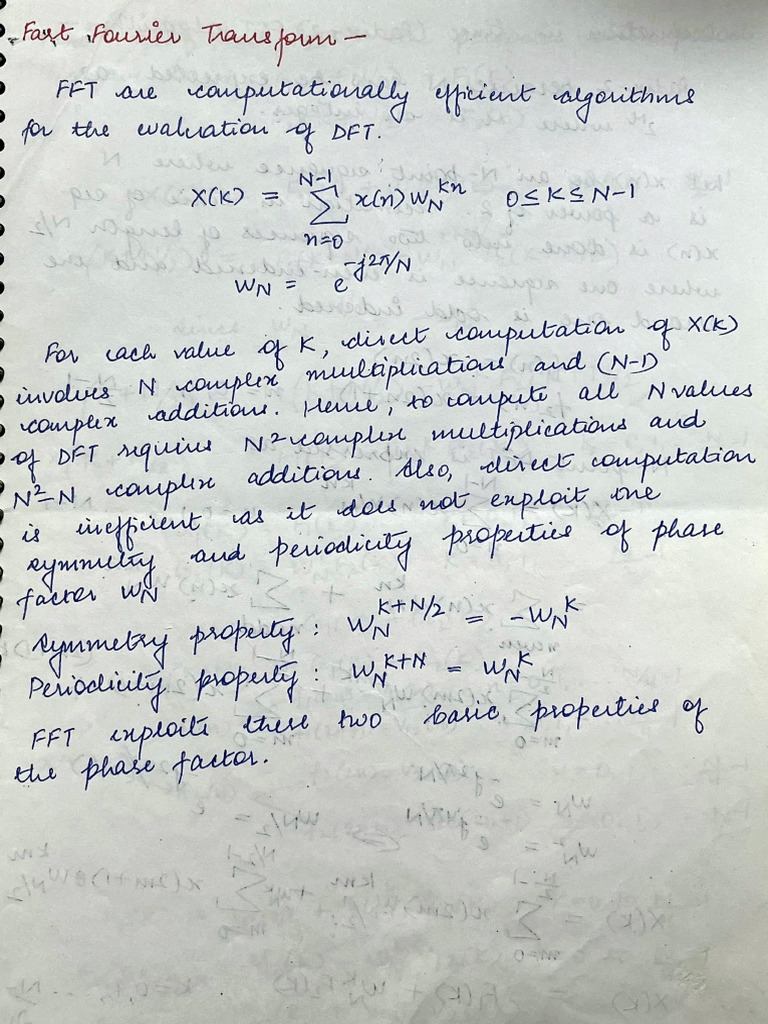 Fast Fourier Transform —
FFT are computationally efficient algorithms
for the evaluation of DFT.
X(K) = N-1 ∑ n=0 x(n) W_N^{kn}    0 ≤ K ≤ N-1
W_N = e^{-j2π/N}
For each value of K, direct computation of X(K)
involves N complex multiplications and (N-1)
complex additions. Hence, to compute all N values
of DFT requires N² complex multiplications and
N²-N complex additions. Also, direct computation
is inefficient as it does not exploit the
symmetry and periodicity properties of phase
factor W_N
Symmetry property : W_N^{K+N/2} = -W_N^K
Periodicity property : W_N^{K+N} = W_N^K
FFT exploits these two basic properties of
the phase factor.